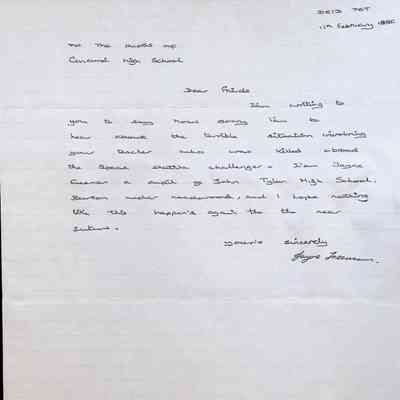 DE13 7ET
11th February 1986
For The Pupils of
Concord High School
Dear Friends
I'am writing to
you to say how sorry I'am to
hear about the terrible situation involving
your teacher who was killed aboard
the Space shuttle challenger. I'am Jayne
Freeman a pupil of John Tyler High School.
Barton under needwood, and I hope nothing
like this happen's again the the near
future.
yours sincerely
Jayne Freeman.